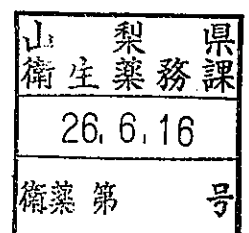 山梨県
衛生薬務課
26.6.16
衛薬第 号